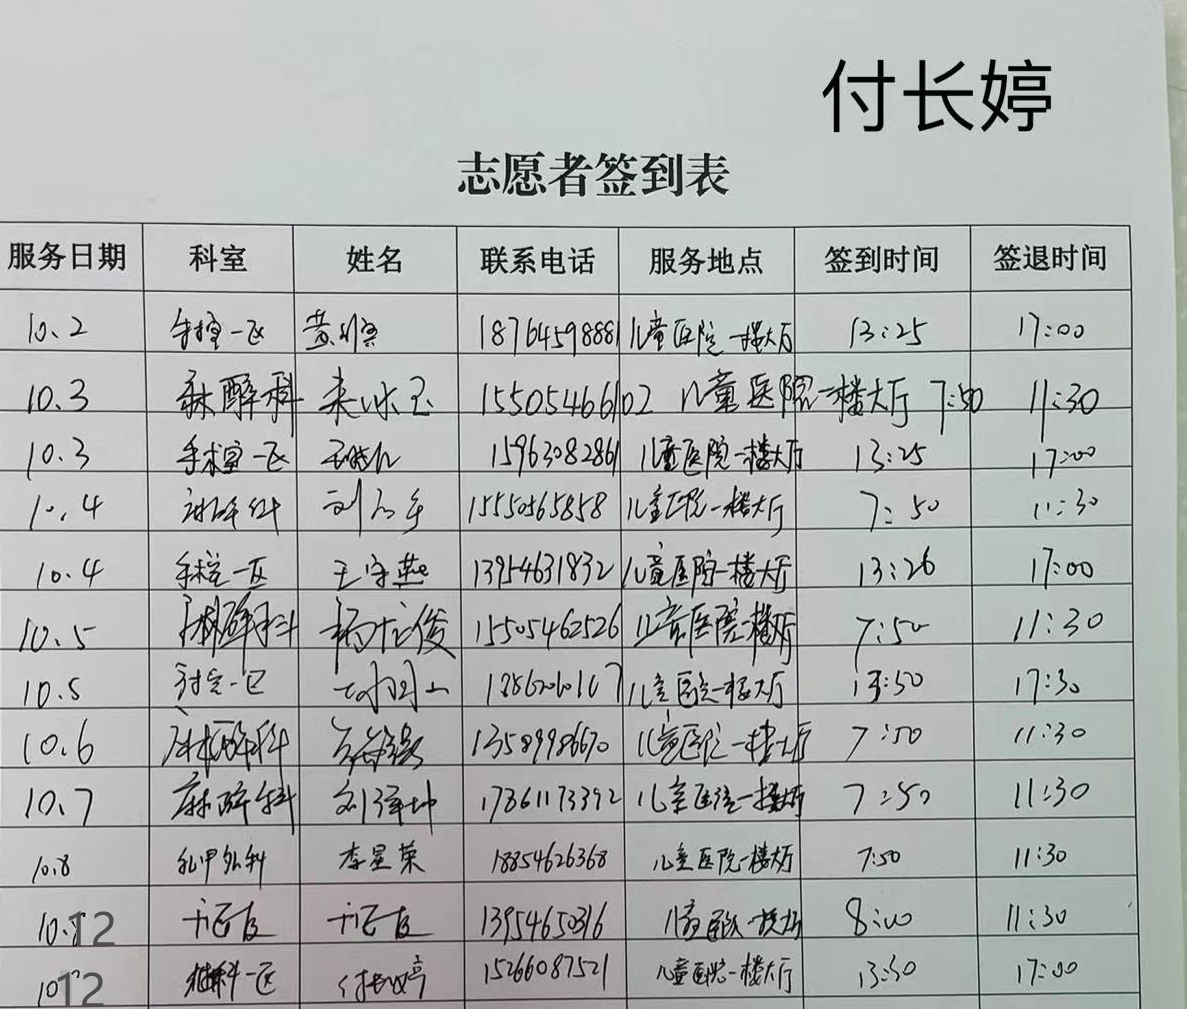 付长婷
志愿者签到表
服务日期 科室 姓名 联系电话 服务地点 签到时间 签退时间
10.2 手术室一区 18764598881 儿童医院一楼大厅 13:25 17:00
10.3 麻醉科 来冰玉 15505466102 儿童医院一楼大厅 7:50 11:30
10.3 手术室一区 15963082861 儿童医院一楼大厅 13:25 17:00
10.4 麻醉科 15550565858 儿童医院一楼大厅 7:50 11:30
10.4 手术室一区 王宇燕 13954631832 儿童医院一楼大厅 13:26 17:00
10.5 麻醉科 杨龙俊 15505462526 儿童医院一楼大厅 7:50 11:30
10.5 儿童医院一楼大厅 13:50 17:30
10.6 麻醉科 13589986670 儿童医院一楼大厅 7:50 11:30
10.7 麻醉科 刘泽坤 17861173392 儿童医院一楼大厅 7:50 11:30
10.8 乳甲外科 李星荣 18854626368 儿童医院一楼大厅 7:50 11:30
10.12 13954650316 儿童医院一楼大厅 8:00 11:30
10.12 一区 付长婷 15266087521 儿童医院一楼大厅 13:30 17:00